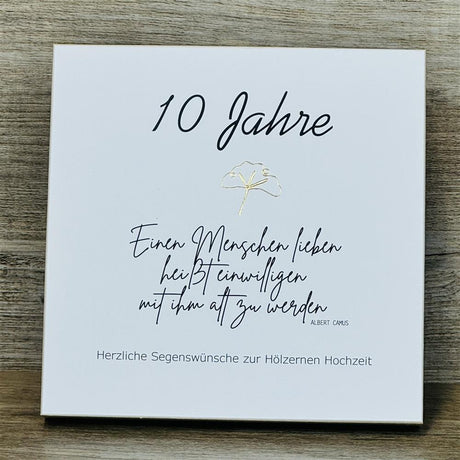 10 Jahre
Einen Menschen lieben
heißt einwilligen
mit ihm alt zu werden
ALBERT CAMUS
Herzliche Segenswünsche zur Hölzernen Hochzeit